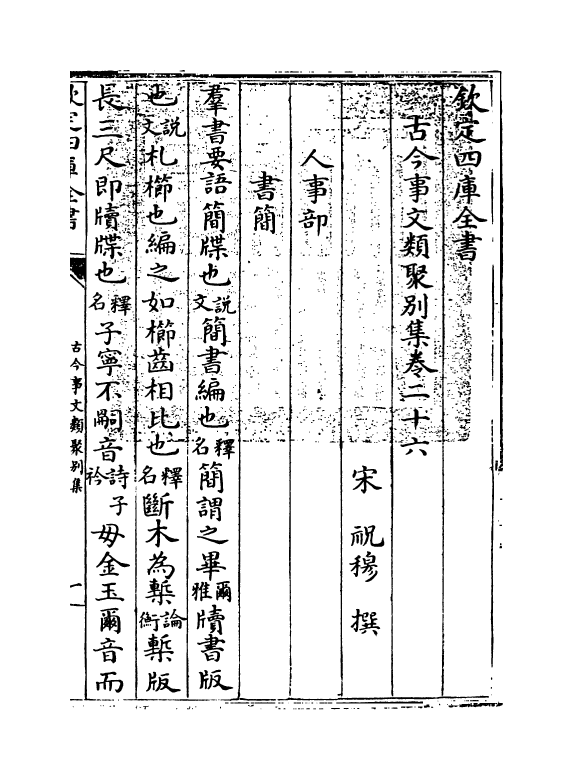 欽定四庫全書
古今事文類聚別集卷二十六
宋 祝穆 撰
人事部
書簡
羣書要語簡牒也說文簡書編也釋名簡謂之畢爾雅牘書版
也說文札櫛也編之如櫛齒相比也釋名斷木為槧論衡槧版
長三尺即牘牒也釋名子寧不嗣音詩子衿毋金玉爾音而
欽定四庫全書
古今事文類聚別集
一